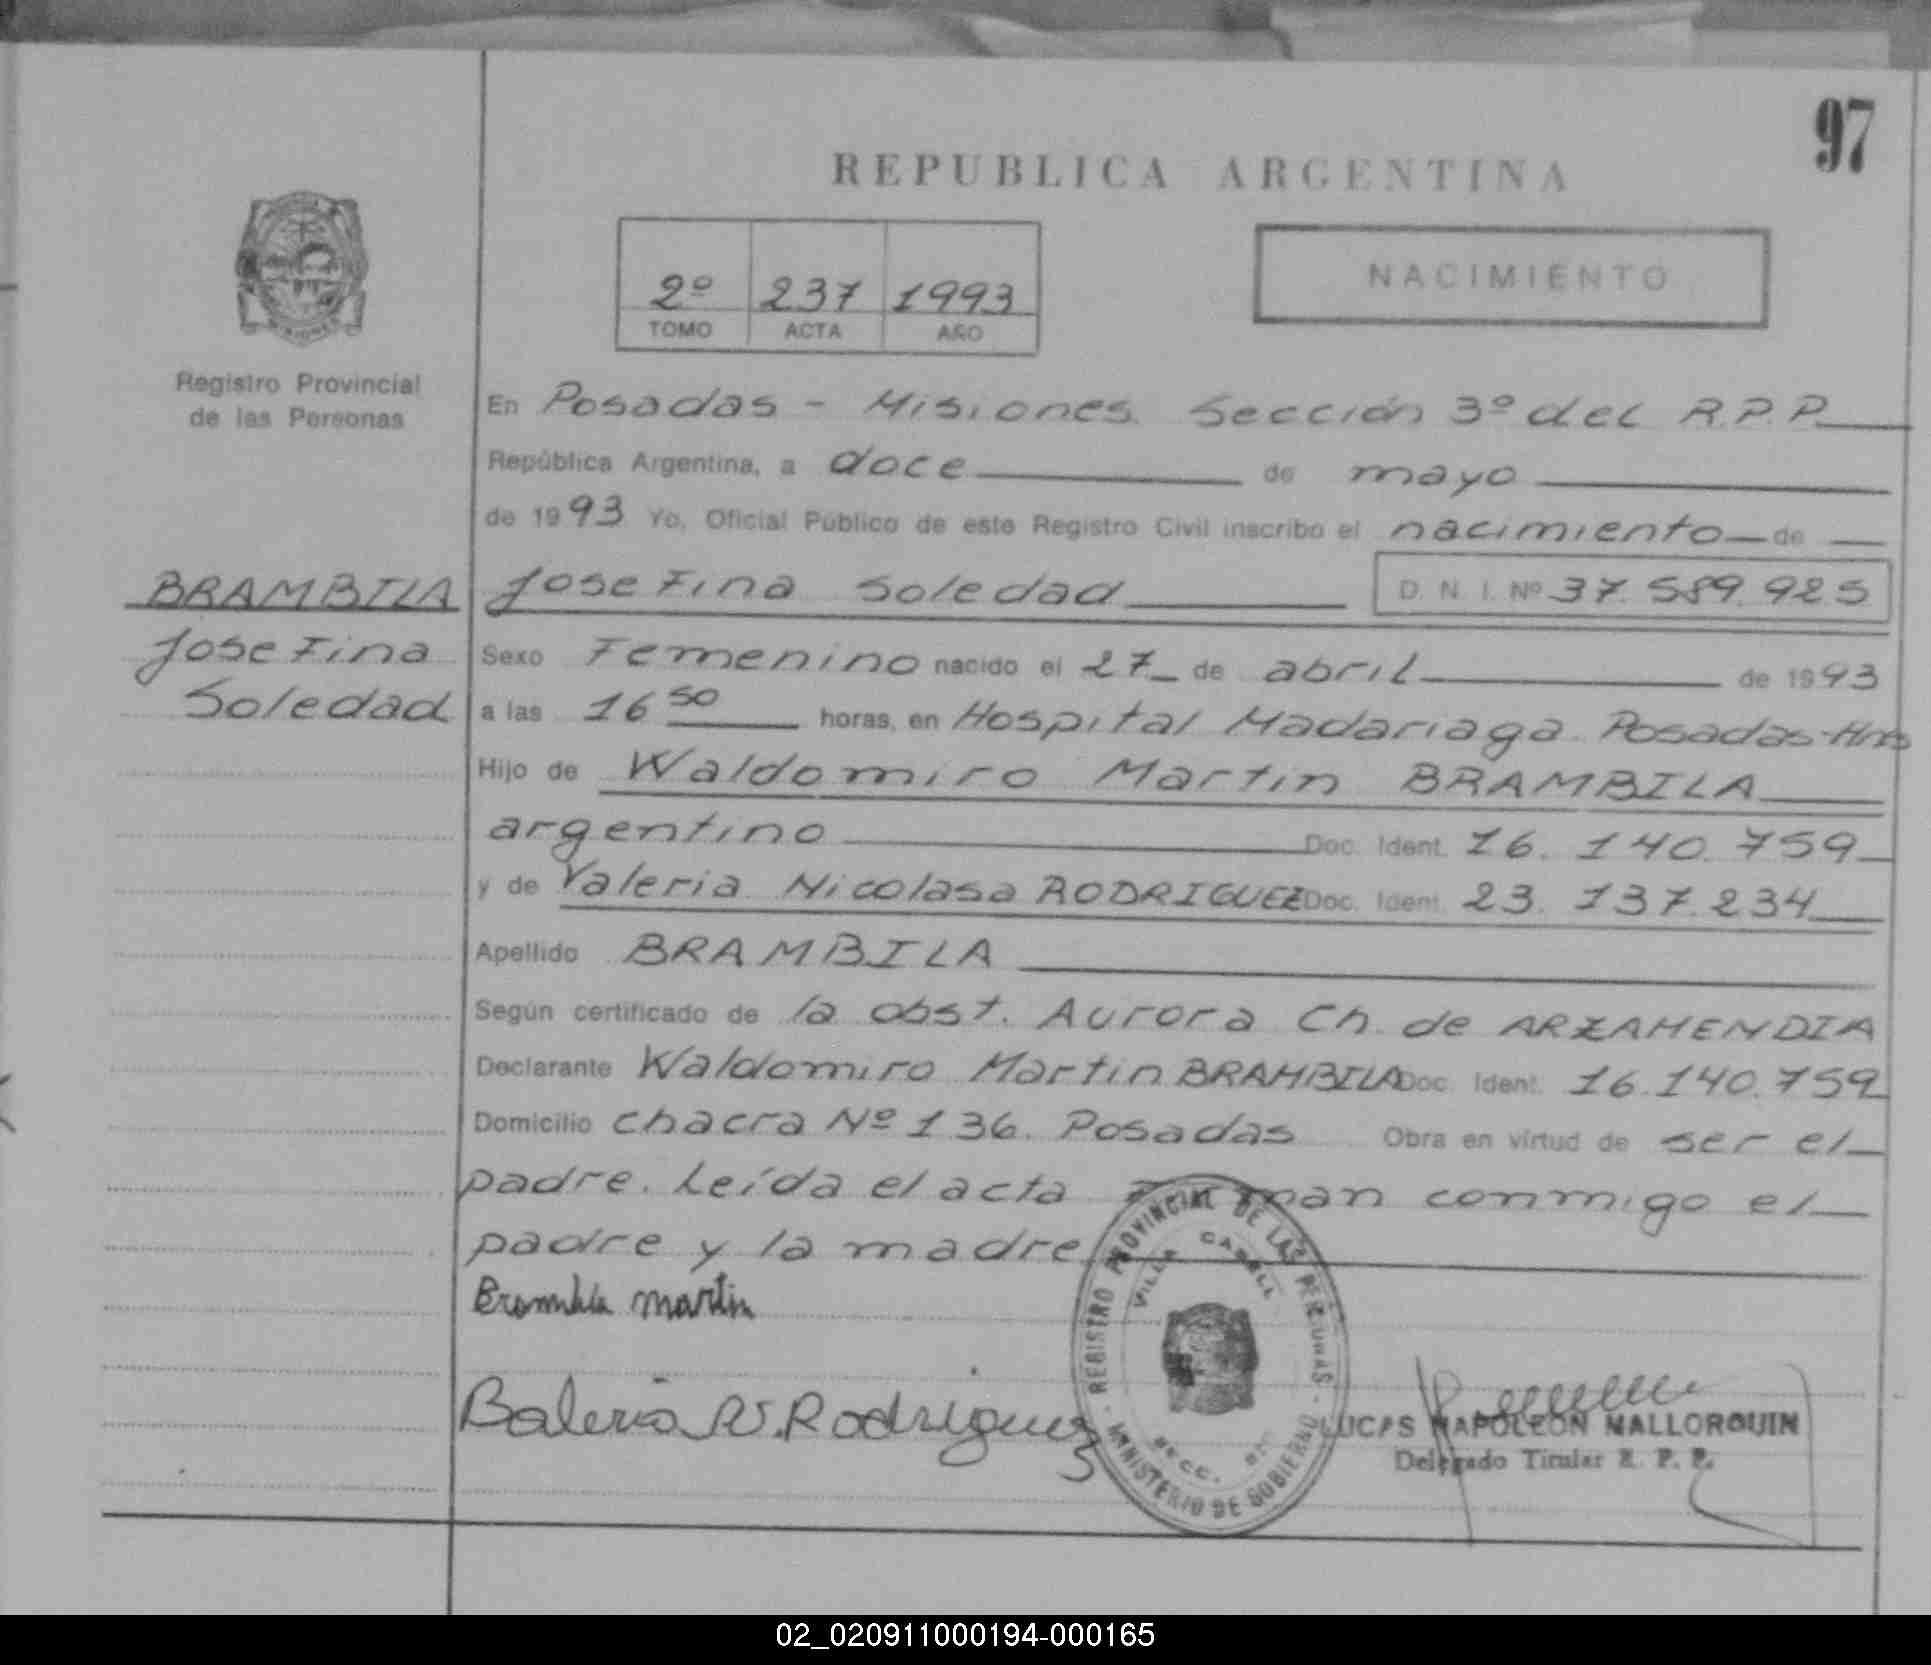 97
REPUBLICA ARGENTINA
2º 237 1993
TOMO ACTA AÑO
NACIMIENTO
MISIONES
Registro Provincial
de las Personas
En Posadas - Misiones. Sección 3º del R.P.P.
República Argentina, a doce de mayo
de 1993 Yo, Oficial Público de este Registro Civil inscribo el nacimiento de
BRAMBILA Josefina Soledad D. N. I. Nº 37.589.925
Josefina Sexo Femenino nacido el 27 de abril de 1993
Soledad a las 16 50 horas, en Hospital Madariaga. Posadas-Mnes
Hijo de Waldomiro Martin BRAMBILA
argentino Doc. Ident. 16.140.759
y de Valeria Nicolasa RODRIGUEZ Doc. Ident. 23.137.234
Apellido BRAMBILA
Según certificado de la obst. Aurora Ch. de ARZAMENDIA
Declarante Waldomiro Martin BRAMBILA Doc. Ident. 16.140.759
Domicilio chacra Nº 136. Posadas Obra en virtud de ser el
padre. Leída el acta firman conmigo el
padre y la madre
Brambila martin
Baleria N. Rodriguez
REGISTRO PROVINCIAL DE LAS PERSONAS
VILLA CABELL
SECC.
MINISTERIO DE GOBIERNO
LUCAS NAPOLEON MALLORQUIN
Delegado Titular R. P. P.
02_020911000194-000165